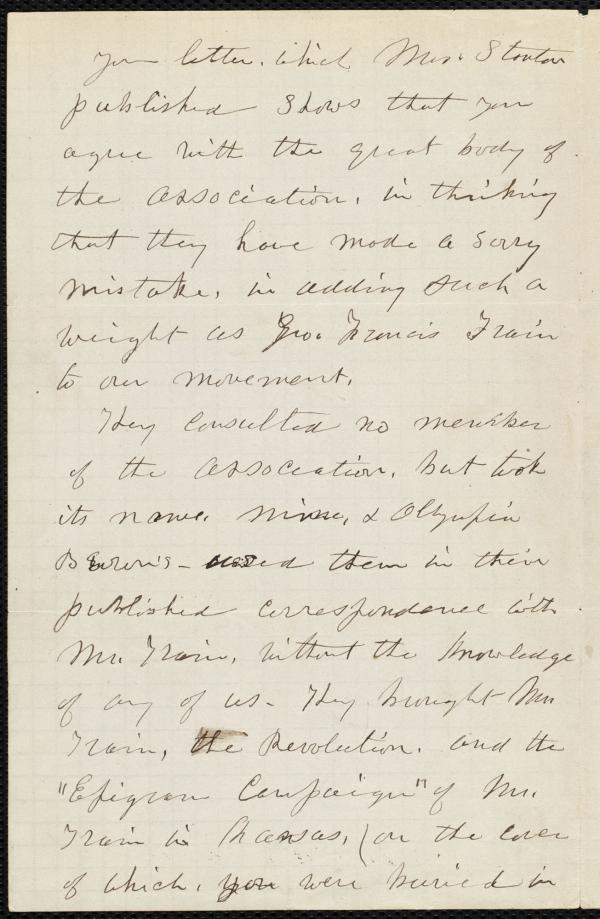 your letter, which Mrs. Stanton
published shows that you
agree with the great body of
the association, in thinking
that they have made a sorry
mistake, in adding such a
weight as Geo. Francis Train
to our movement.
They consulted no member
of the association, but took
its name, mine, & Olympia
Brown's - used them in their
published correspondence with
Mr. Train, without the knowledge
of any of us - They brought Mr.
Train, the Revolution, and the
"Epigram Campaign" of Mr.
Train in Kansas, (on the cover
of which, you were buried in